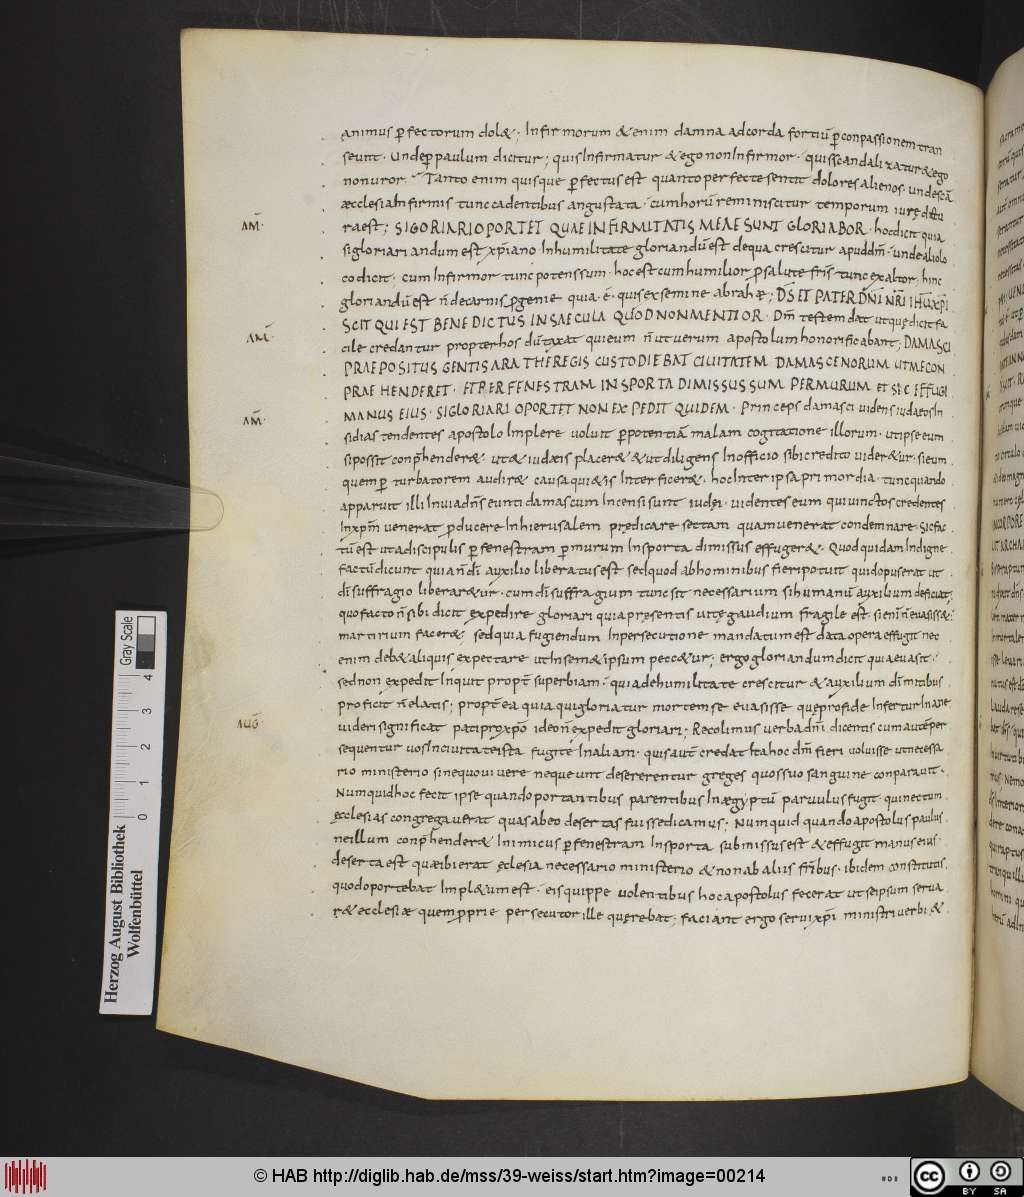 animus ꝑfectorum dol&; Infirmorum & enim damna adcorda fortiū ꝑconpassionem tran
seunt. Undeꝑpaulum dicitur; quisInfirmatur & ego nonInfirmor. quisscandalizatur & ego
nonuror. Tanto enim quisque ꝑfectus est quanto perfecte sentit dolores alienos.
æcclesia Infirmis tunc cadentibus angustata. cumhorū reminiscitur temporum
AM̄
raest; SIGORIARIOPORTET QUAE INFIRMITATIS MEAE SUNT GLORIABOR. hocdicit quia
sigloriari andum est xp̄iano Inhumilitate gloriandū est dequa crescitur apuddm̄. unde aliolo
co dicit; cum Infirmor tunc potenssum. hoc est cum humilior ꝓsalute frīs tunc exaltor; hinc
gloriandū est n̄ decarnis ꝓgenie quia.ē. quis ex semine abrahæ; D̄S ET PATER DN̄I NR̄I IHŪXPĪ
SCIT QUI EST BENEDICTUS IN SAECULA QUOD NON MENTIOR. Dm̄ testem dat utquę dicit fa
AM̄
cile credantur propter hos dūtaxat quieum n̄ ut uerum apostolum honorificabant; DAMASCI
PRAEPOSITUS GENTIS ARATHE REGIS CUSTODIEBAT CIUITATEM DAMASCENORUM UT ME CON
PRAEHENDERET. ET PER FENESTRAM IN SPORTA DIMISSUS SUM PER MURUM ET SIC EFFUGI
AM̄
MANUS EIUS. SI GLORIARI OPORTET NON EXPEDIT QUIDEM. Princeps damasci uidens iudaeosIn
sidias tendentes apostolo Implere uoluit ꝑpotentiā malam cogitatione illorum. utipse eum
sipossit conp̄hender&. ut& iudæis placer& & ut diligens Inofficio sibi credito uider&ur. si eum
quemꝑ turbatorem audir& causa qui&is Interficer&. hoc Inter ipsa primordia. tuncquando
apparuit illi Inuiadn̄s eunti damascum Incensi sunt iudei. uidentes eum qui uinctos credentes
Inxpm̄ uenerat ꝑducere Inhierusalem prędicare sectam quamuenerat condemnare. Sic fac
tū est ut a discipulis ꝑfenestram ꝑmurum Insporta dimissus effuger&. Quod quidam Indigne
factū dicunt quia n̄ dī auxilio liberatus est sed quod abhominibus fieri potuit qui dopuserat ut
dī suffragio liberar&ur. cum dī suffragium tunc sit necessarium si humanū auxilium deficiat
quo facto n̄ sibi dicit expedire gloriari quia presentis uitę gaudium fragile est.
martirum facer& sed quia fugiendum Inpersecutione mandatum est data opera effugit nec
enim deb& aliquis expectare ut Insem&ipsum pecc&ur; ergo gloriandum dicit quia euasit.
sed non expedit Inquit propt̄ superbiam. quia de humilitate crescitur & auxilium dī mitibus
proficit n̄ elatis; propt̄ ea quia qui gloriatur mortem se euasisse quę profide Infertur Inane
AUḠ
uideri significat pati pro xp̄o ideo n̄ expedit gloriari; Recolimus uerba dn̄i dicentis cum autē per
sequentur uos Inciuitate ista fugite Inaliam. quis autē credat Ita hoc dm̄ fieri uoluisse ut necessa
rio ministerio sine quo uiuere nequeunt desererentur greges quos suo sanguine conparauit.
Numquid hoc fecit ipse quando portantibus parentibus Inægyptū paruulus fugit. qui nectum
ęcclesias congregauerat quas ab eo desertas fuisse dicamus; Numquid quando apostolus paulus
neillum conp̄hender& Inimicus ꝑfenestram Insporta submissus est & effugit manus eius.
deserta est quæ ibi erat ęclesia necessario ministerio & non ab aliis frībus. ibidem constitutis
quod oportebat Impl&um est. eis quippe uolentibus hoc apostolus fecerat ut seipsum serua
r& ecclesiæ quem ꝓprie persecutor ille quęrebat; faciant ergo serui xp̄i ministri uerbi &
Gray Scale
0 1 2 3 4
Herzog August Bibliothek
Wolfenbüttel
© HAB http://diglib.hab.de/mss/39-weiss/start.htm?image=00214
cc BY SA